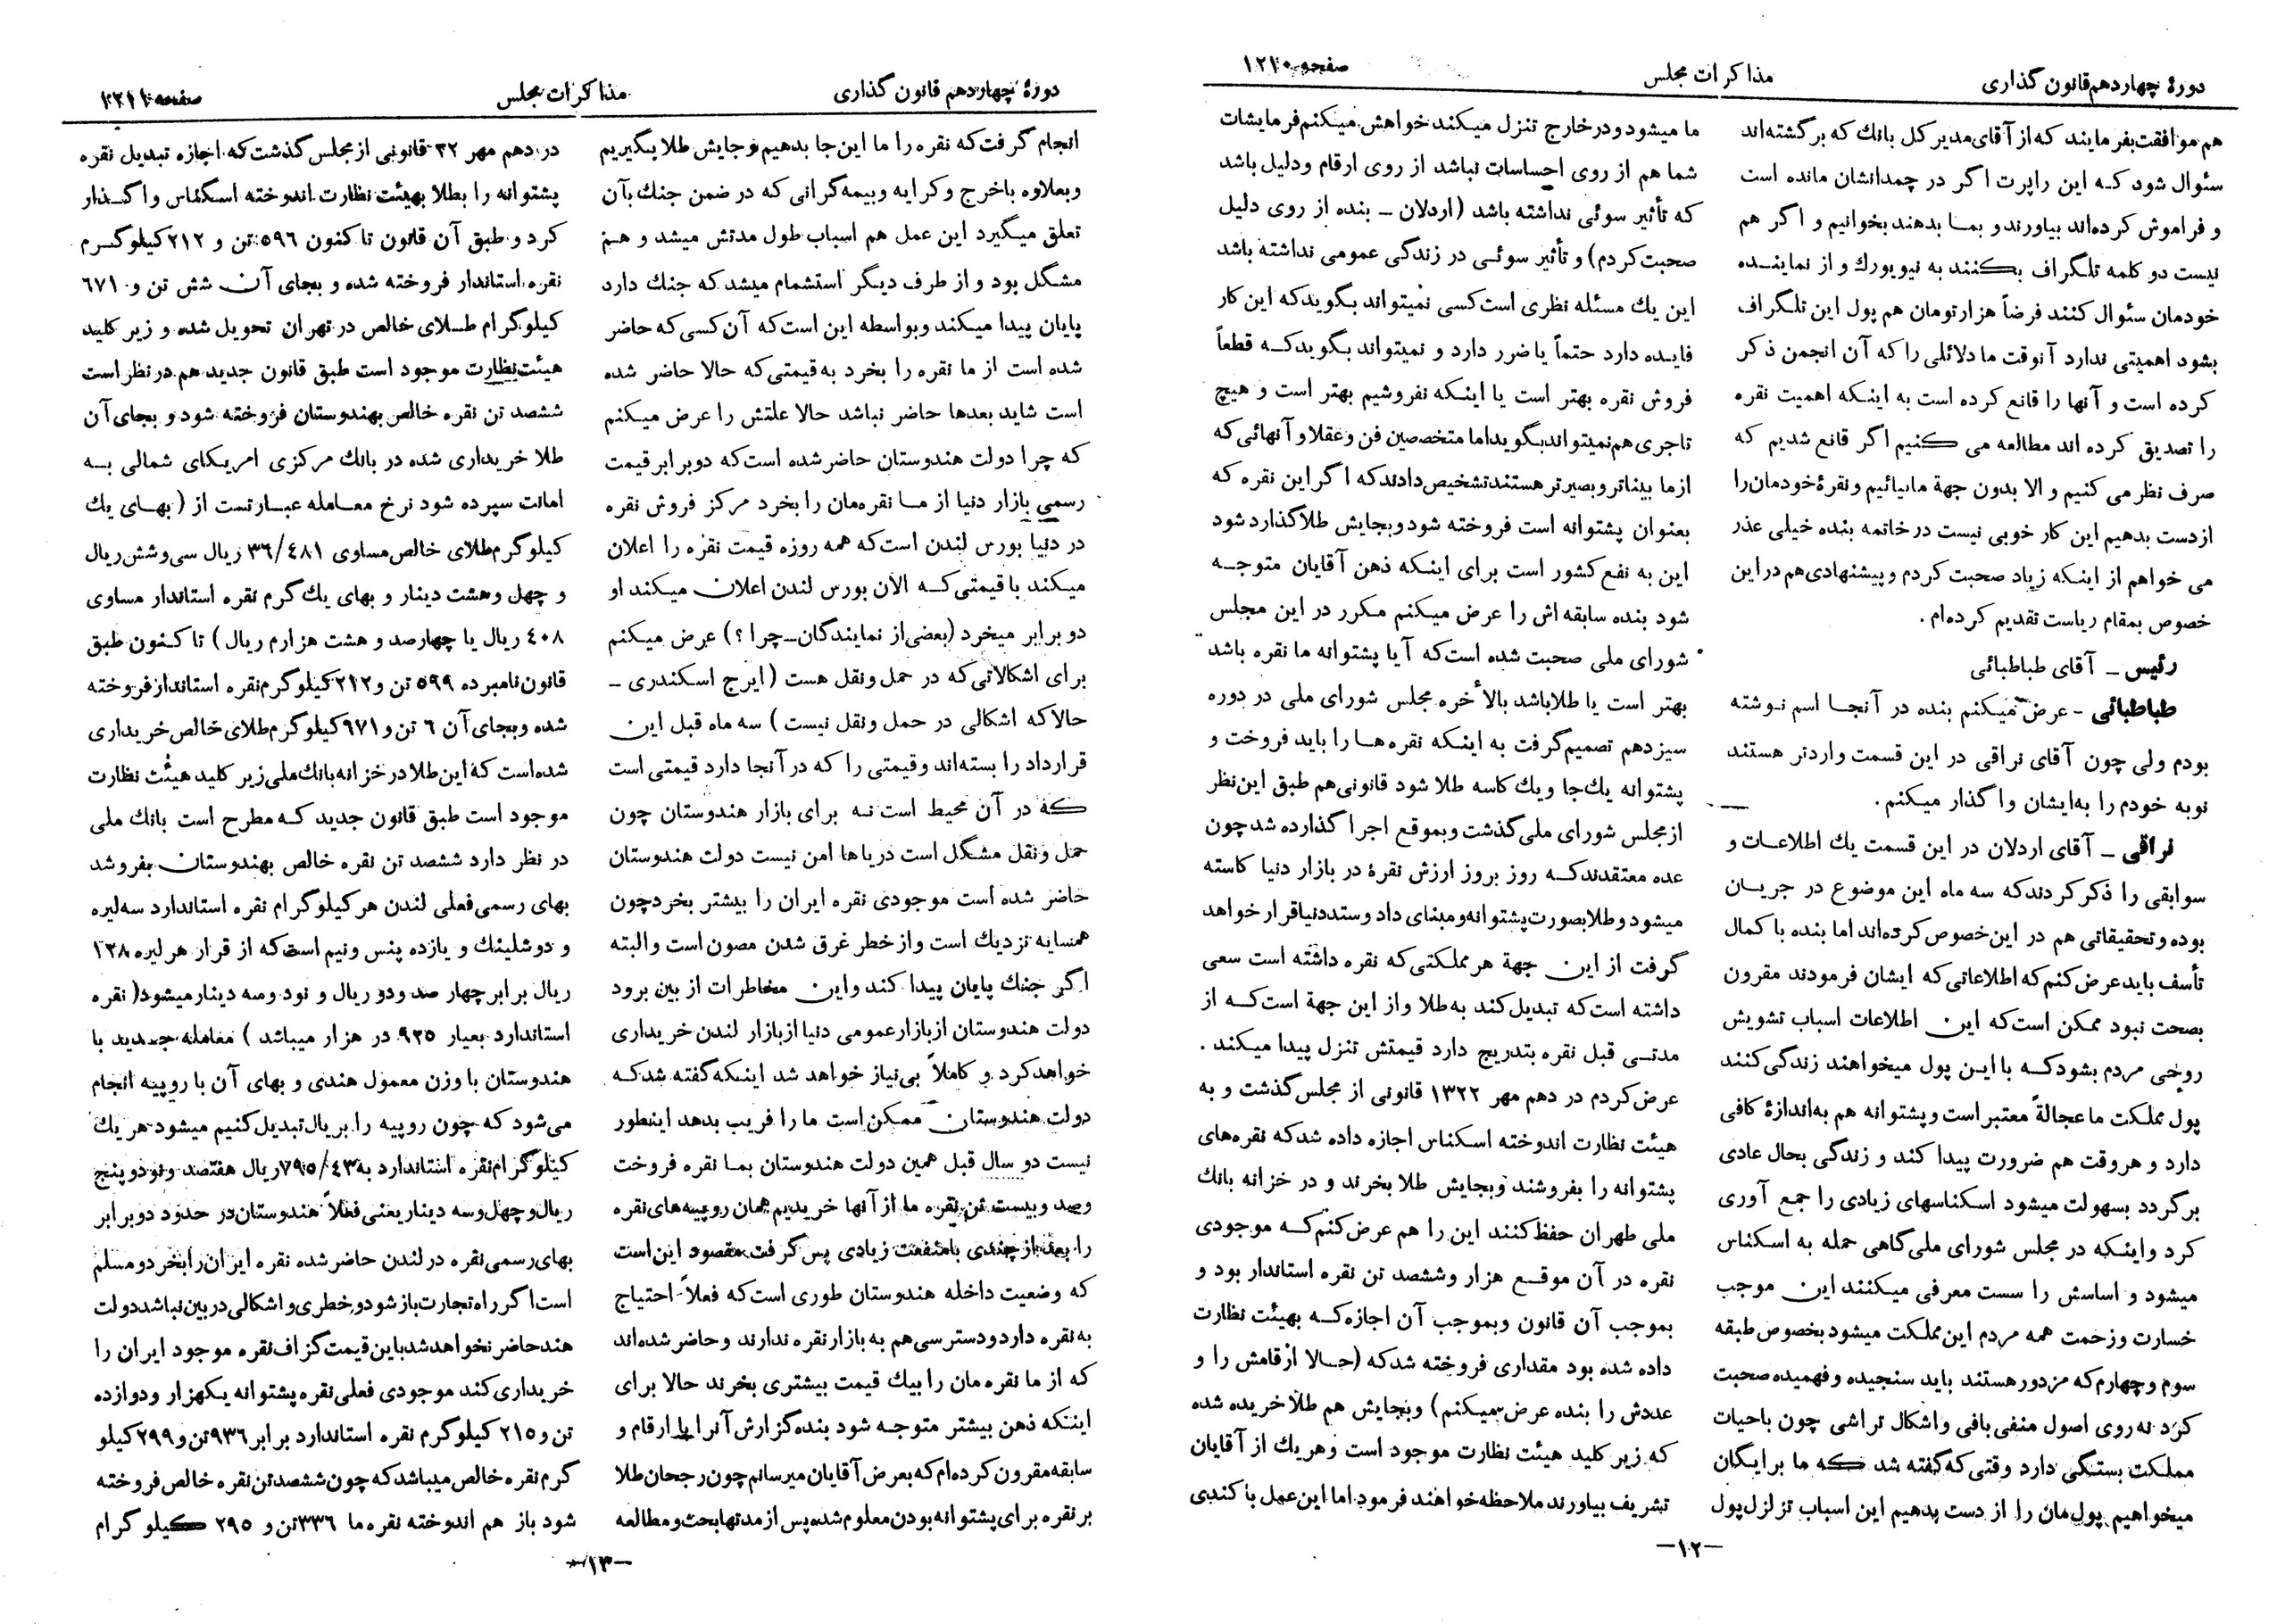 دورهٔ چهاردهم قانون گذاری
مذاکرات مجلس
صفحه ۱۲۱۰
هم موافقت بفرمایند که از آقای مدیر کل بانك که برگشته‌اند
سئوال شود کـه این راپرت اگر در چمدانشان مانده است
و فراموش کرده‌اند بیاورند و بمـا بدهند بخوانیم و اگر هم
نیست دو کلمه تلگراف بـکنند به نیویورك و از نماینـده
خودمان سئوال کنند فرضاً هزارتومان هم پول این تلـگراف
بشود اهمیتی ندارد آنوقت ما دلائلی را که آن انجمن ذکر
کرده است و آنها را قانع کرده است به اینـکه اهمیت نقره
را تصدیق کرده اند مطالعه می کنیم اگر قانع شدیم که
صرف نظر می کنیم و الا بدون جهة مابیائیم و نقرهٔ خودمان را
ازدست بدهیم این کار خوبی نیست در خاتمه بنده خیلی عذر
می خواهم از اینکه زیاد صحبت کردم و پیشنهادی هم در این
خصوص بمقام ریاست تقدیم کرده‌ام .
رئیس ــ آقای طباطبائی
طباطبائی - عرض میـکنم بنده در آنجـا اسم نـوشته
بودم ولی چون آقای نراقی در این قسمت واردتر هستند
نوبه خودم را به‌ایشان واگذار میکنم .
نراقی ــ آقای اردلان در این قسمت یك اطلاعـات و
سوابقی را ذکر کردند که سه ماه این موضوع در جریـان
بوده و تحقیقاتی هم در این خصوص کرده‌اند اما بنده با کمال
تأسف باید عرض کنم که اطلاعاتی که ایشان فرمودند مقرون
بصحت نبود ممکن است که این اطلاعات اسباب تشویش
روحی مردم بشود کـه با ایـن پول میخواهند زندگی کنند
پول مملکت ما عجالةً معتبر است و پشتوانه هم به‌اندازهٔ کافی
دارد و هروقت هم ضرورت پیدا کند و زندگی بحال عادی
برگردد بسهولت میشود اسکناسهای زیادی را جمع آوری
کرد و اینـکه در مجلس شورای ملی گاهی حمله به اسکناس
میشود و اساسش را سست معرفی میـکنند این موجب
خسارت و زحمت همه مردم این مملکت میشود بخصوص طبقه
سوم و چهارم که مزدور هستند باید سنجیده و فهمیده صحبت
کرد نه روی اصول منفی بافی و اشکال تراشی چون باحیات
مملکت بستگی دارد وقتی که گفته شد که ما برایـگان
میخواهیم پول مان را از دست بدهیم این اسباب تزلزل پول
ما میشود و در خارج تنزل میکند خواهش میکنم فرمایشات
شما هم از روی احساسات نباشد از روی ارقام و دلیل باشد
که تأثیر سوئی نداشته باشد (اردلان ــ بنده از روی دلیل
صحبت کردم) و تأثیر سوئـی در زندگی عمومی نداشته باشد
این یك مسئله نظری است کسی نمیتواند بگوید که این کار
فایـده دارد حتماً یا ضرر دارد و نمیتواند بـگوید کـه قطعاً
فروش نقره بهتر است یا اینـکه نفروشیم بهتر است و هیچ
تاجری هم نمیتواند بگوید اما متخصصین فن و عقلا و آنهائی که
ازما بیناتر و بصیرتر هستند تشخیص دادند که اگر این نقره که
بعنوان پشتوانه است فروخته شود و بجایش طلا گذارد شود
این به نفع کشور است برای اینـکه ذهن آقایان متوجـه
شود بنده سابقه اش را عرض میکنم مکرر در این مجلس
شورای ملی صحبت شده است که آیا پشتوانه ما نقره باشد
بهتر است یا طلا باشد بالأخره مجلس شورای ملی در دوره
سیزدهم تصمیم گرفت به اینـکه نقره هـا را باید فروخت و
پشتوانه یك جا و یك کاسه طلا شود قانونی هم طبق این نظر
از مجلس شورای ملی گذشت و بموقع اجرا گذارده شد چون
عده معتقدند کـه روز بروز ارزش نقرهٔ در بازار دنیا کاسته
میشود و طلا بصورت پشتوانه و مبنای داد و ستد دنیا قرار خواهد
گرفت از این جهة هر مملکتی که نقره داشته است سعی
داشته است که تبدیل کند به طلا و از این جهة است کـه از
مدتـی قبل نقره بتدریج دارد قیمتش تنزل پیدا میکند .
عرض کردم در دهم مهر ۱۳۲۲ قانونی از مجلس گذشت و به
هیئت نظارت اندوخته اسکناس اجازه داده شد که نقره‌های
پشتوانه را بفروشند و بجایش طلا بخرند و در خزانه بانك
ملی طهران حفظ کنند این را هم عرض کنم کـه موجودی
نقره در آن موقـع هزار و ششصد تن نقره استاندار بود و
بموجب آن قانون و بموجب آن اجازه کـه بهیئت نظارت
داده شده بود مقداری فروخته شد که (حـالا ارقامش را و
عددش را بنده عرض میکنم) و بجایش هم طلا خریده شده
که زیر کلید هیئت نظارت موجود است و هر یك از آقایان
تشریف بیاورند ملاحظه خواهند فرمود اما این عمل با کندی
—۱۲—
دورهٔ چهاردهم قانون گذاری
مذاکرات مجلس
صفحه ۱۲۱۱
انجام گرفت که نقره را ما این جا بدهیم و جایش طلا بگیریم
و بعلاوه باخرج و کرایه و بیمه گرانی که در ضمن جنك بآن
تعلق میـگیرد این عمل هم اسباب طول مدتش میشد و هـم
مشگل بود و از طرف دیگر استشمام میشد که جنك دارد
پایان پیدا میکند و بواسطه این است که آن کسی که حاضر
شده است از ما نقره را بخرد به قیمتی که حالا حاضر شده
است شاید بعدها حاضر نباشد حالا علتش را عرض میکنم
که چرا دولت هندوستان حاضر شده است که دوبرابر قیمت
رسمی بازار دنیا از مـا نقره‌مان را بخرد مرکز فروش نقره
در دنیا بورس لندن است که همه روزه قیمت نقره را اعلان
میکند با قیمتی کـه الان بورس لندن اعلان میکند او
دو برابر میخرد (بعضی از نمایندگان ــ چرا ؟) عرض میکنم
برای اشکالاتی که در حمل و نقل هست (ایرج اسکندری ــ
حالا که اشکالی در حمل و نقل نیست ) سه ماه قبل این
قرارداد را بسته‌اند و قیمتی را که در آنجا دارد قیمتی است
که در آن محیط است نـه برای بازار هندوستان چون
حمل و نقل مشگل است دریاها امن نیست دولت هندوستان
حاضر شده است موجودی نقره ایران را بیشتر بخرد چون
همسایه نزدیك است و از خطر غرق شدن مصون است و البته
اگر جنك پایان پیدا کند و این مخاطرات از بین برود
دولت هندوستان از بازار عمومی دنیا از بازار لندن خریداری
خواهد کرد و کاملاً بی‌نیاز خواهد شد اینـکه گفته شد کـه
دولت هندوستان ممکن است ما را فریب بدهد اینطور
نیست دو سال قبل همین دولت هندوستان بمـا نقره فروخت
وصد و بیست تن نقره ما از آنها خریدیم همان روپیه های نقره
را بعد از چندی با منفعت زیادی پس گرفت مقصود این است
که وضعیت داخله هندوستان طوری است که فعلاً احتیاج
به نقره دارد و دسترسی هم به بازار نقره ندارند و حاضر شده‌اند
که از ما نقره مان را بیك قیمت بیشتری بخرند حالا برای
اینـکه ذهن بیشتر متوجـه شود بنده گزارش آنرا با ارقام و
سابقه مقرون کرده‌ام که بعرض آقایان میرسانم چون رجحان طلا
بر نقره برای پشتوانه بودن معلوم شده پس از مدتها بحث و مطالعه
در دهم مهر ۳۲ قانونی از مجلس گذشت که اجازه تبدیل نقره
پشتوانه را بطلا بهیئت نظارت اندوخته اسکناس واگـذار
کرد و طبق آن قانون تا کنون ۵۹۶ تن و ۲۱۲ کیلوگـرم
نقره استاندار فروخته شده و بجای آن شش تن و ۶۷۱
کیلوگرام طـلای خالص در تهران تحویل شده و زیر کلید
هیئت نظارت موجود است طبق قانون جدید هم در نظر است
ششصد تن نقره خالص بهندوستان فروخته شود و بجای آن
طلا خریداری شده در بانك مرکزی امریکای شمالی بـه
امانت سپرده شود نرخ معـامله عبـارتست از (بهـای یك
کیلوگرم طلای خالص مساوی ۳۶/۴۸۱ ریال سی و شش ریال
و چهل و هشت دینار و بهای یك گرم نقره استاندار مساوی
۴۰۸ ریال یا چهارصد و هشت هزارم ریال) تا کـنون طبق
قانون نامبرده ۵۹۹ تن و ۲۱۲ کیلوگرم نقره استاندار فروخته
شده و بجای آن ۶ تن و ۹۷۱ کیلوگرم طلای خالص خریداری
شده است که این طلا در خزانه بانك ملی زیر کلید هیئت نظارت
موجود است طبق قانون جدید کـه مطرح است بانك ملی
در نظر دارد ششصد تن نقره خالص بهندوستان بفروشد
بهای رسمی فعلی لندن هر کیلوگرام نقره استاندارد سه لیره
و دو شلینك و یازده پنس و نیم است که از قرار هر لیره ۱۲۸
ریال برابر چهار صد و دو ریال و نود و سه دینار میشود( نقره
استاندارد بعیار ۹۲۵ در هزار میباشد ) معامله جـدید با
هندوستان با وزن معمول هندی و بهای آن با روپیه انجام
می‌شود که چون روپیه را بریال تبدیل کنیم میشود هر یك
کیلوگرام نقره استاندارد به ۷۹۵/۴۳ ریال هفتصد و نود و پنج
ریال و چهل و سه دینار یعنی فعلاً هندوستان در حدود دو برابر
بهای رسمی نقره در لندن حاضر شده نقره ایران را بخرد و مسلم
است اگر راه تجارت باز شود و خطری و اشکالی در بین نباشد دولت
هند حاضر نخواهد شد باین قیمت گزاف نقره موجود ایران را
خریداری کند موجودی فعلی نقره پشتوانه یکهزار و دوازده
تن و ۲۱۵ کیلوگرم نقره استاندارد برابر ۹۳۶ تن و ۲۹۹ کیلو
گرم نقره خالص میباشد که چون ششصد تن نقره خالص فروخته
شود باز هم اندوخته نقره ما ۳۳۶ تن و ۲۹۵ کیلو گرام
—۱۳—